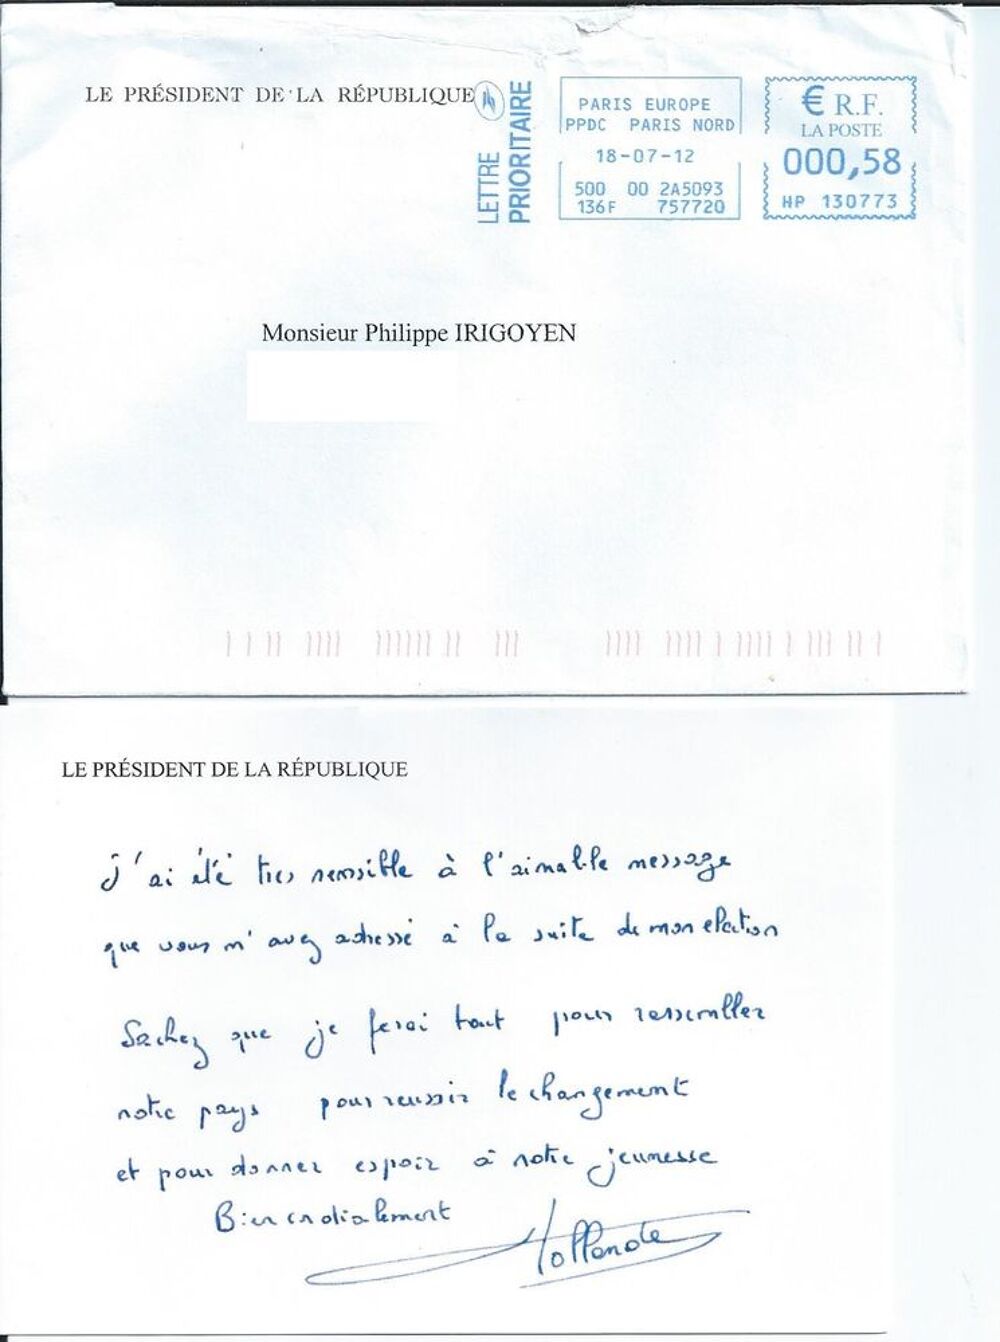 LE PRÉSIDENT DE LA RÉPUBLIQUE
LETTRE
PRIORITAIRE
PARIS EUROPE
PPDC PARIS NORD
18-07-12
500 00 2A5093
136F 757720
€ R.F.
LA POSTE
000,58
HP 130773
Monsieur Philippe IRIGOYEN
LE PRÉSIDENT DE LA RÉPUBLIQUE
J'ai été très sensible à l'aimable message
que vous m'avez adressé à la suite de mon election
Sachez que je ferai tout pour rassembler
notre pays pour reussir le changement
et pour donner espoir à notre jeunesse
Bien cordialement
Hollande